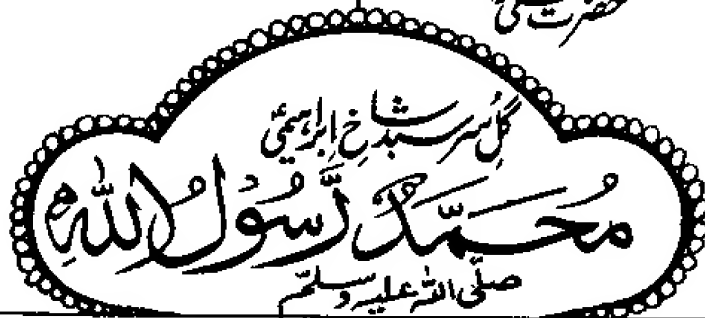 حضرت
گُلِ سرسبد شاخِ ابراہیمیؑ
مُحَمَّدٌ رَّسُوْلُ اللّٰهِ
صلّی اللہ علیہ وسلّم